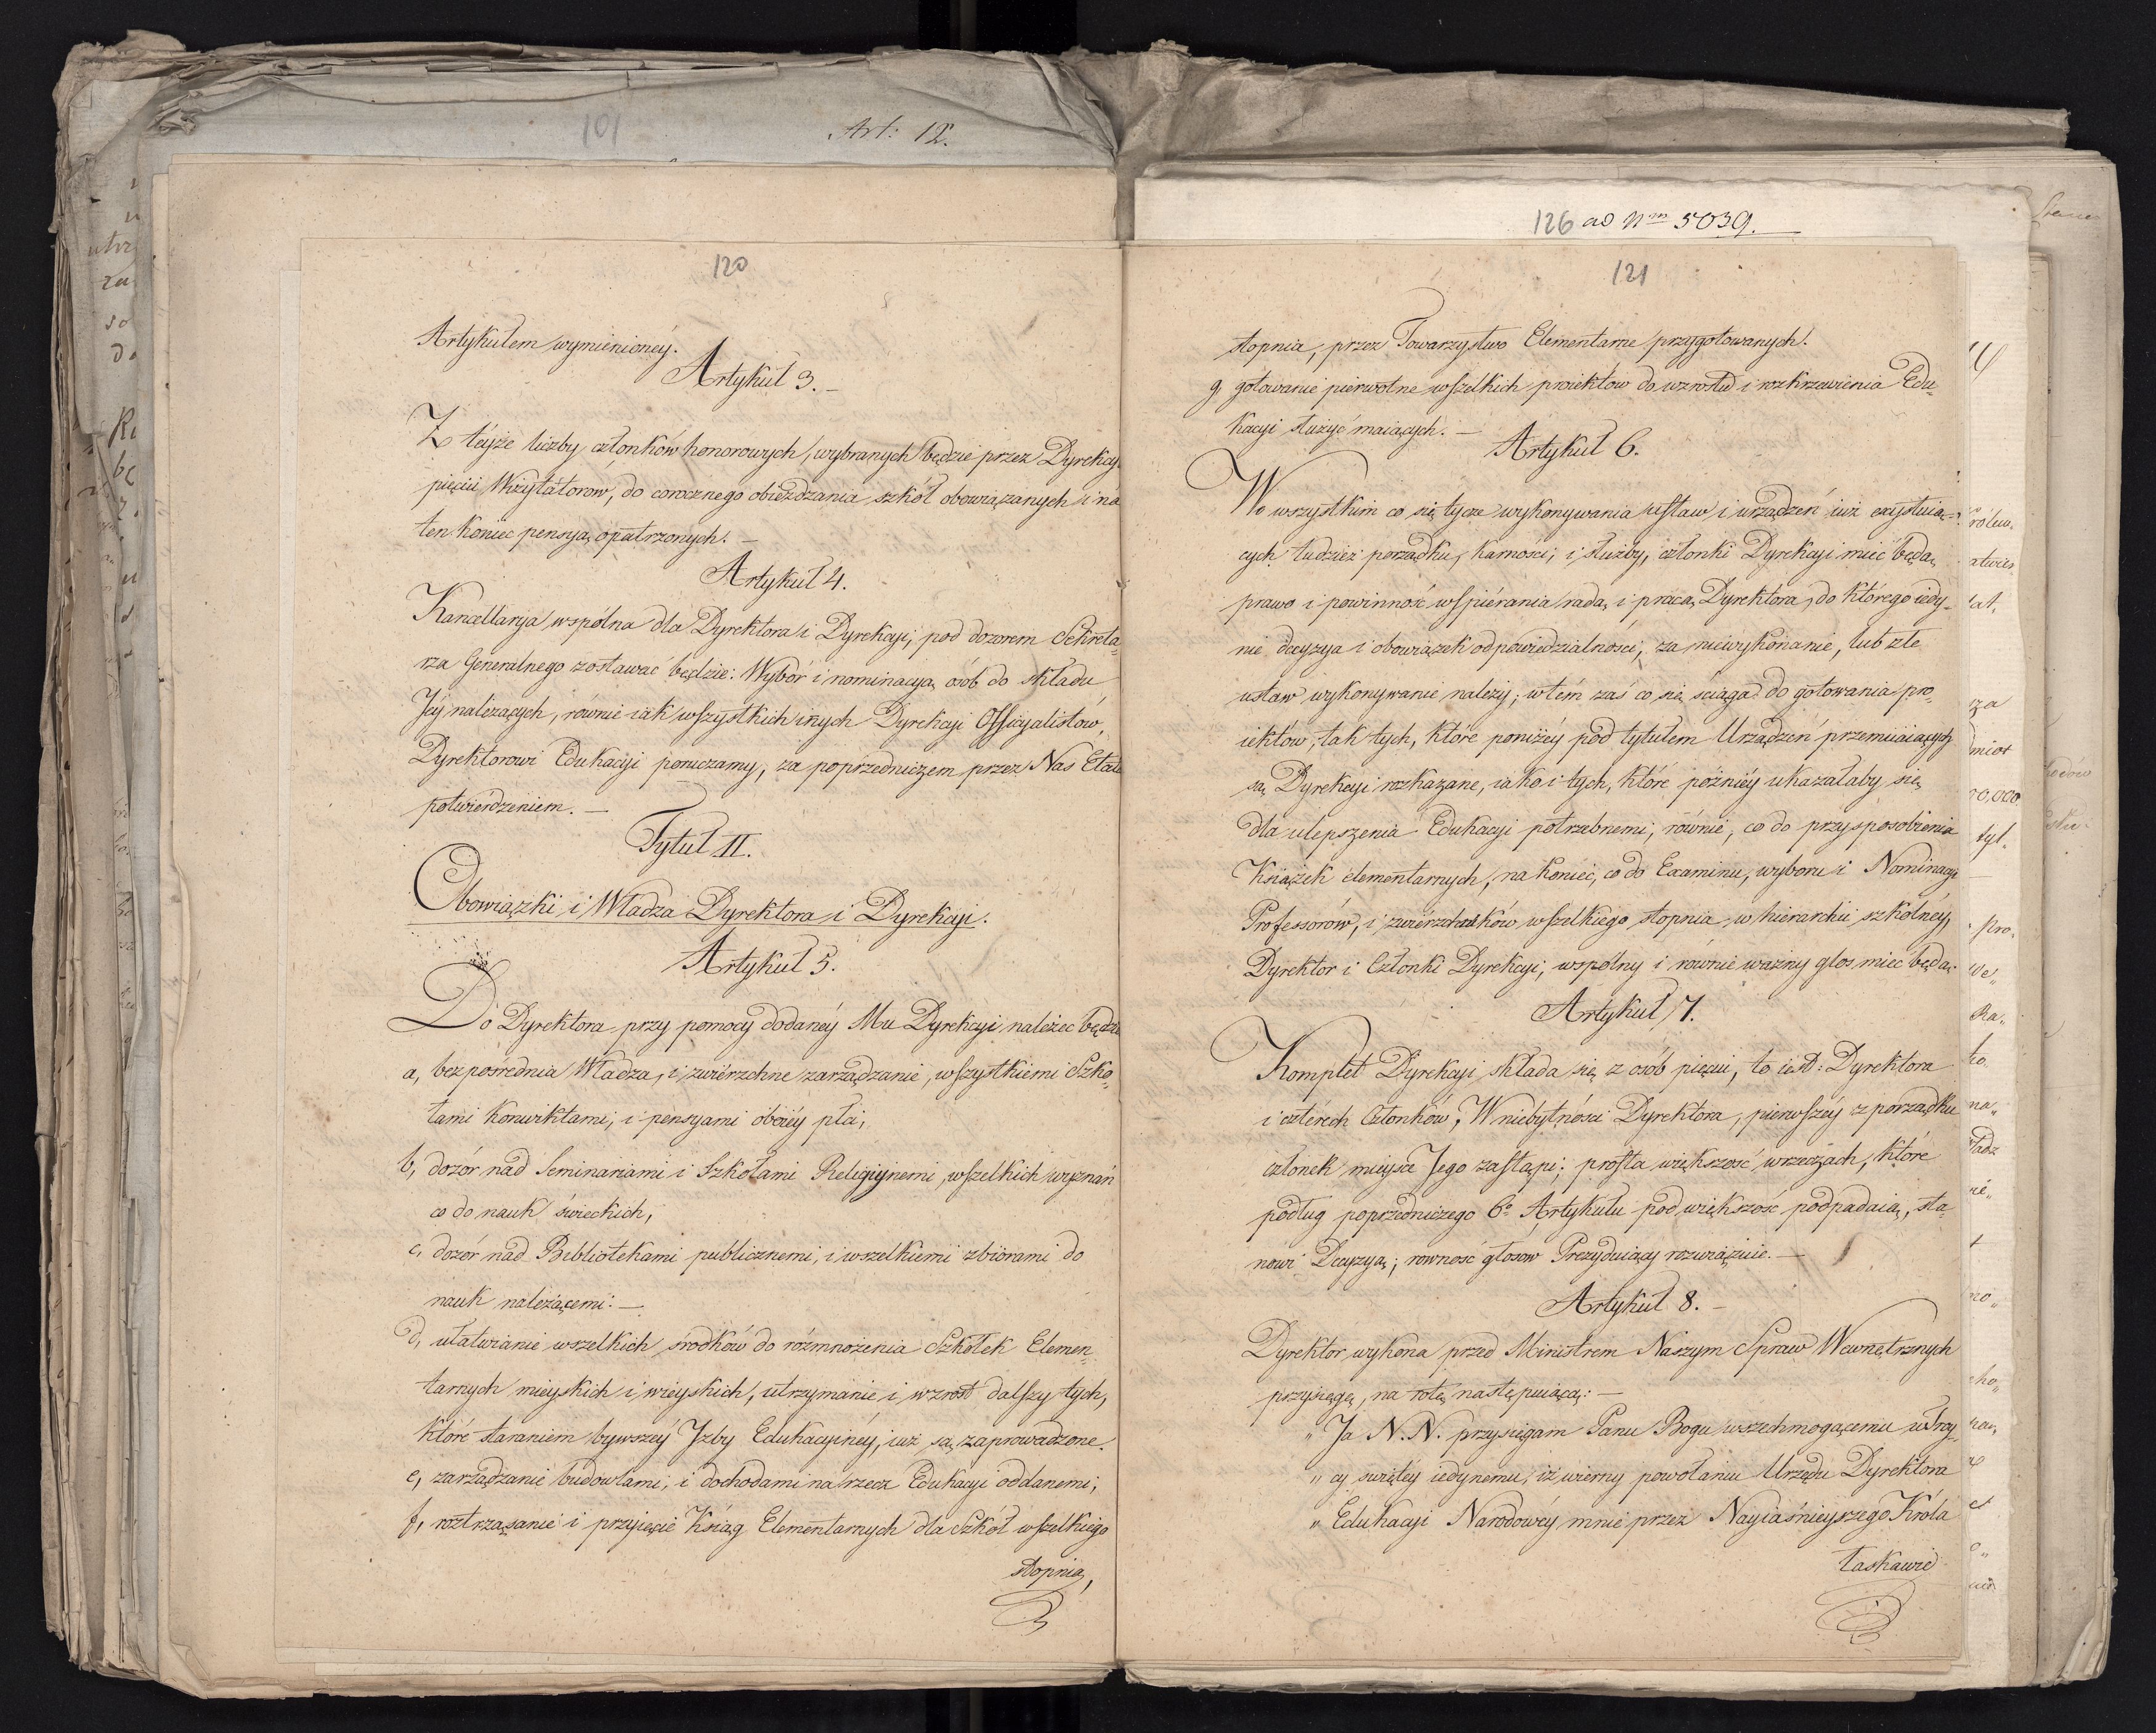 101
Art: 12.
120
Artykułem wymienionéy.
Artykuł 3. —
Z téyże liczby członków honorowych, wybranych będzie przez Dyrekcy
pięciu Wizytatorów, do corocznego obieżdzania szkół obowiązanych i na
ten koniec pensyą opatrzonych. —
Artykuł 4.
Kancellarya wspólna dla Dyrektora i Dyrekcyi, pod dozorem Sekreta„
rza Generalnego zostawać będzie: Wybór i nominacyą osób do składu
Jéy należących, równie iak wszystkich inych Dyrekcyi Officyalistów,
Dyrektorowi Edukacyi poruczamy, za poprzedniczem przez Nas Etatu
potwierdzeniem. —
Tytuł II.
Obowiązki i Władza Dyrektora i Dyrekcyi.
Artykuł 5.
Do Dyrektora przy pomocy dodanéy Mu Dyrekcyi należeć będzie
a, bezpośrednia Władza, i zwiérzchne zarządzanie, wszystkiemi Szko„
łami konwiktami, i pensyami oboiéy płci,
b, dozór nad Seminariami i Szkołami Religiynemi, wszelkich wyznań
co do nauk świeckich,
c, dozór nad Bibliotekami publicznemi, i wszelkiemi zbiorami do
nauk należącemi: —
d, ułatwianie wszelkich środków do rozmnożenia Szkółek Elemen„
tarnych mieyskich i wieyskich, utrzymanie i wzrost dalszy tych,
które staraniem bywszéy Jzby Edukacyinéy, iuż są zaprowadzone.
e, zarządzanie budowlami, i dochodami na rzecz Edukacyi oddanemi,
f, roztrząsanie i przyięcie Ksiąg Elementarnych dla Szkół wszelkiego
stopnia,
126 ad Nm 5039.
121
stopnia, przez Towarzystwo Elementarne przygotowanych.
g, gotowanie pierwotne wszelkich proiektów do wzrostu i rozkrzewienia Edu„
kacyi służyć maiących. —
Artykuł 6.
We wszystkim co się tycze wykonywania ustaw i urządzeń iuż exystuią„
cych tudzież porządku, karności, i służby, członki Dyrekcyi mieć będą,
prawo i powinność wspiérania radą i pracą Dyrektora, do którego iedy„
nie decyzya i obowiązek odpowiedzialności, za niewykonanie, lub złe
ustaw wykonywanie należy; w tém zaś co się ściąga do gotowania pro„
iektów, tak tych, które poniżéy pod tytułem Urządzeń przemiiaiących
są Dyrekcyi rozkazane, iako i tych, które poźniéy ukazałaby się
dla ulepszenia Edukacyi potrzebnemi, równie, co do przysposobienia
Książek elementarnych, na koniec, co do Examinu, wyboru i Nominacyi
Professorów, i zwiérzchników wszelkiego stopnia w hierarchii szkolnéy,
Dyrektor i Członki Dyrekcyi, wspolny i równie ważny głos mieć będą.
Artykuł 7.
Komplet Dyrekcyi składa się z osób pięciu, to iest: Dyrektora
i cztérech Członków, W niebytności Dyrektora, pierwszéy z porządku
członek mieysce Jego zastąpi; prosta większość w rzeczach, które
podług poprzedniczego 6o Artykułu pod większość podpadaią, sta„
nowi Decyzyą; rownosć głosow Prezyduiący rozwiązuie. —
Artykuł 8. —
Dyrektor wykona przed Ministrem Naszym Spraw Wewnętrznych
przysięgę, na rotę następuiącą: —
„ Ja N. N. przysięgam Panu Bogu wszechmogącemu w Tróy„
„ cy swiętéy iedynemu, iż wierny powołaniu Urzędu Dyrektora
„ Edukacyi Narodowéy mnie przez Nayiaśnieyszego Króla
łaskawie